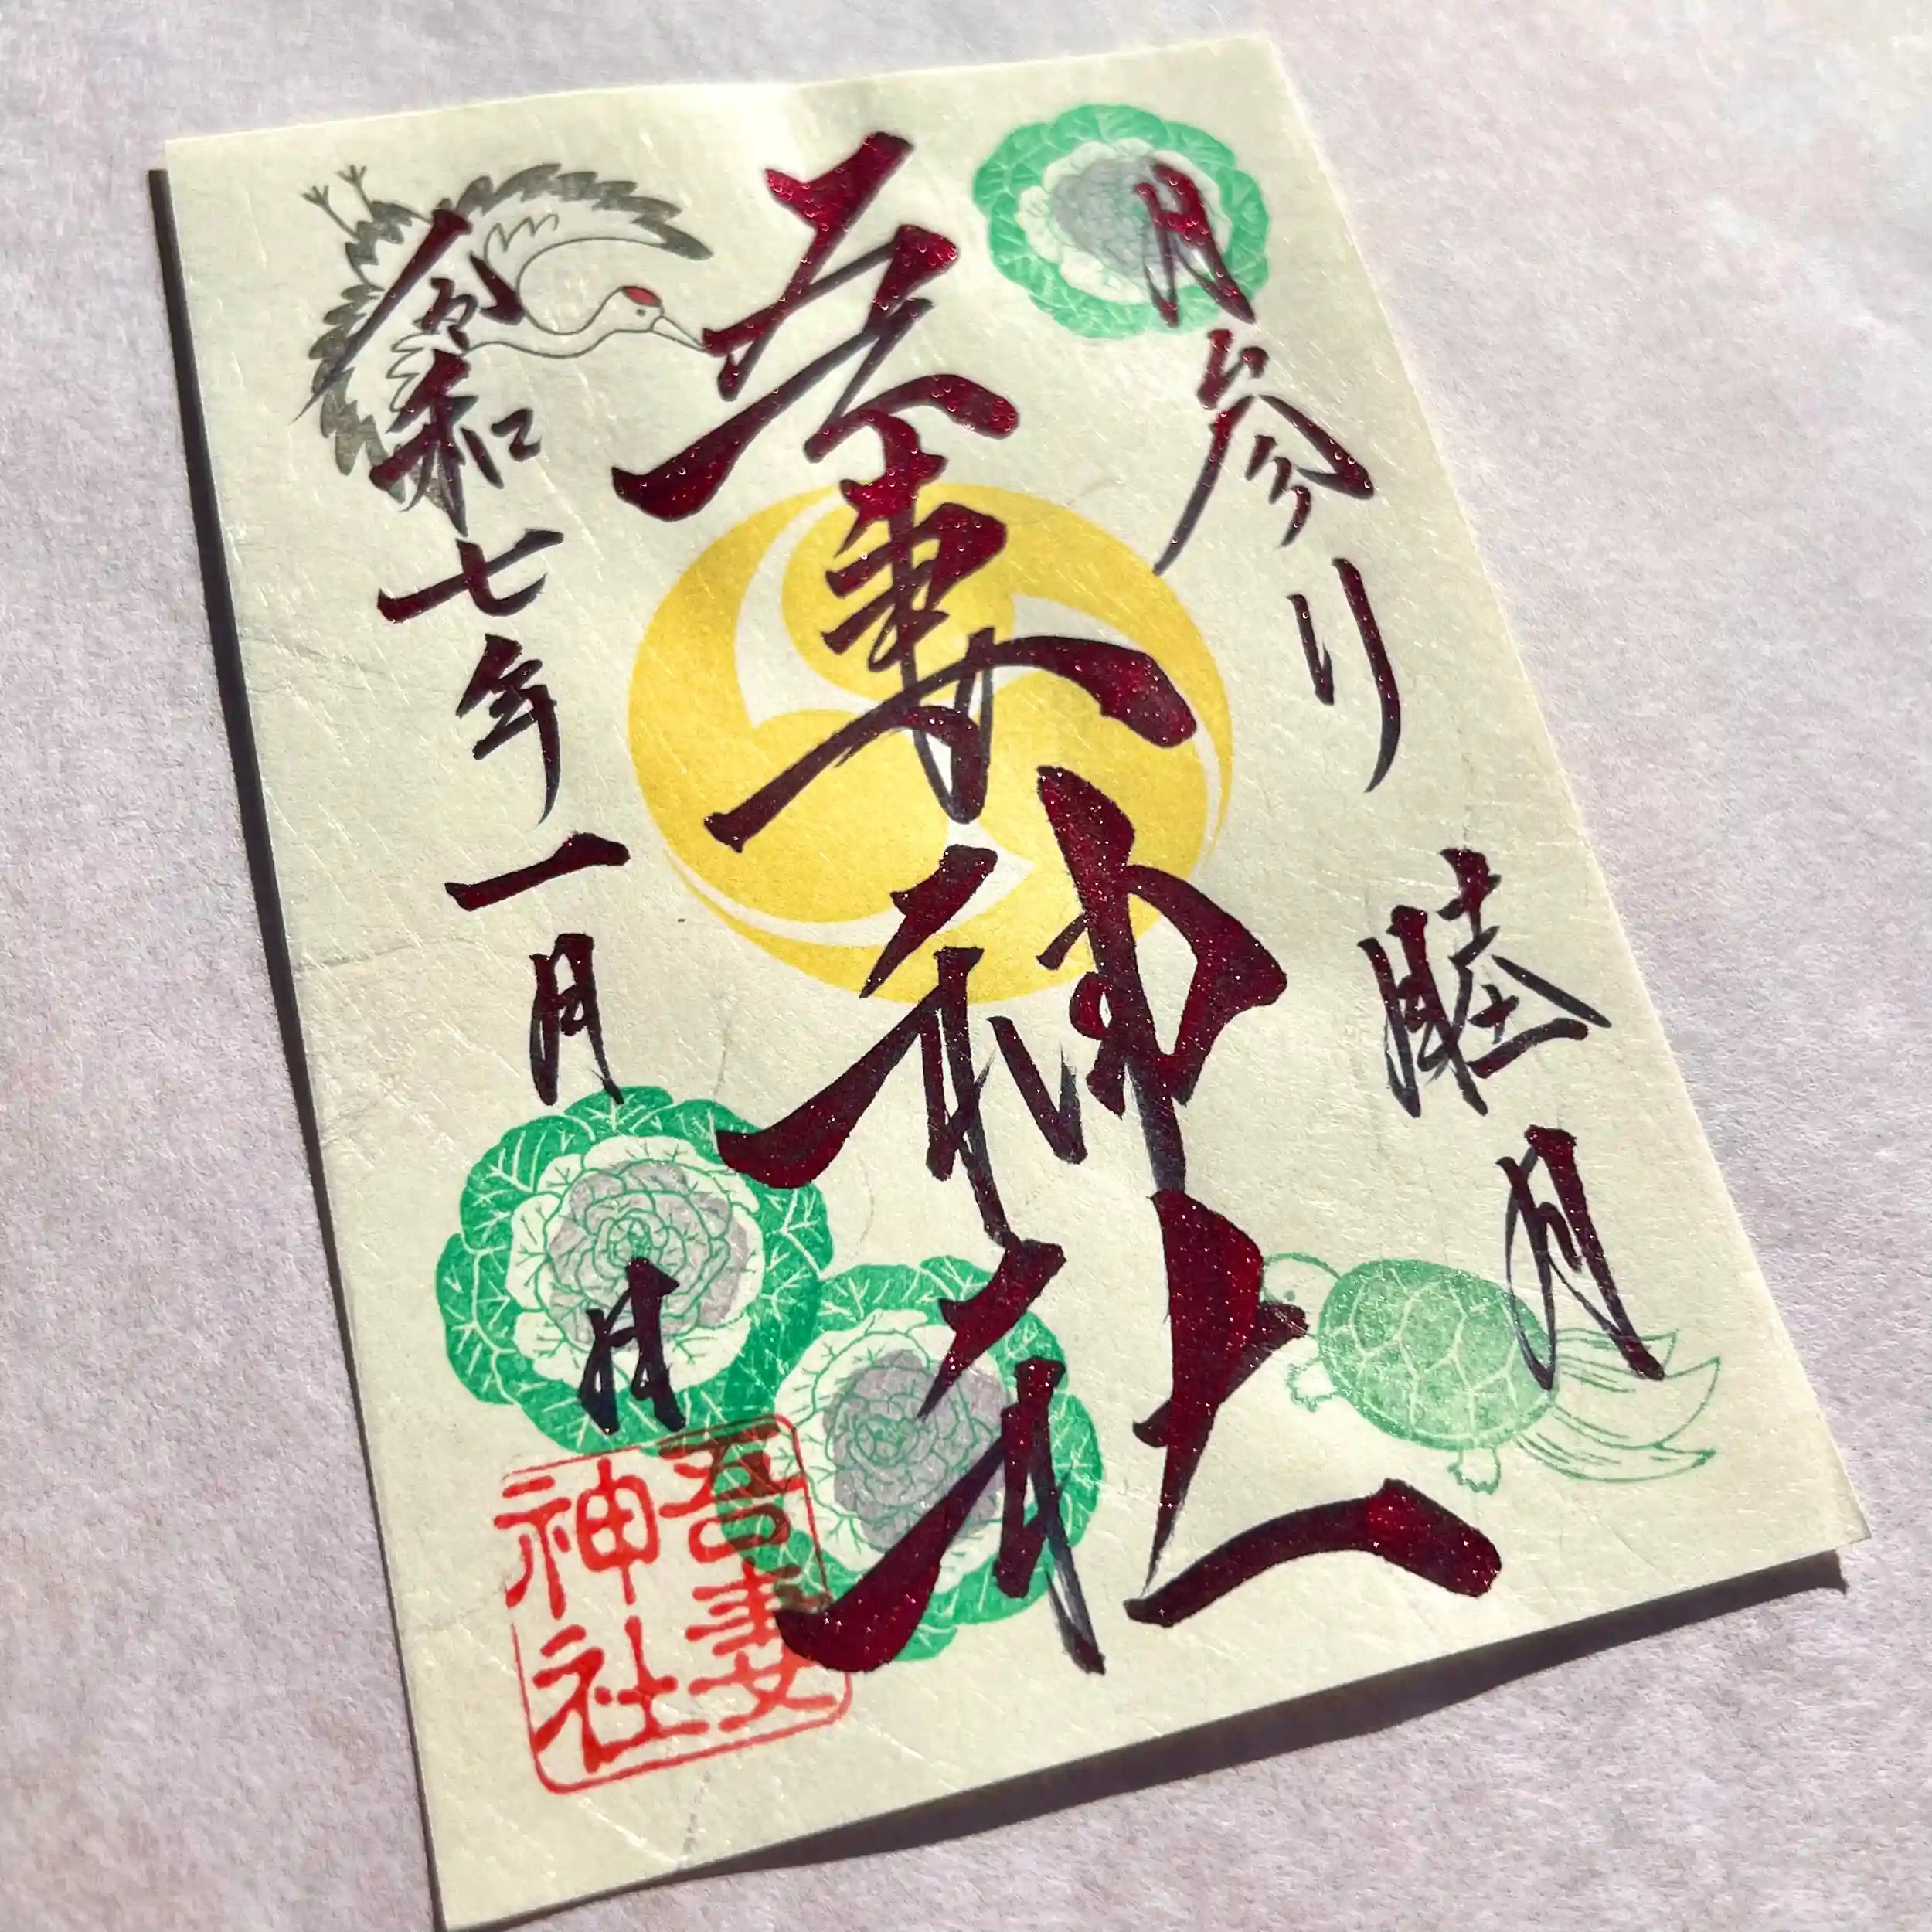 月参り 睦月
吾妻神社
令和七年一月 日
吾妻
神社